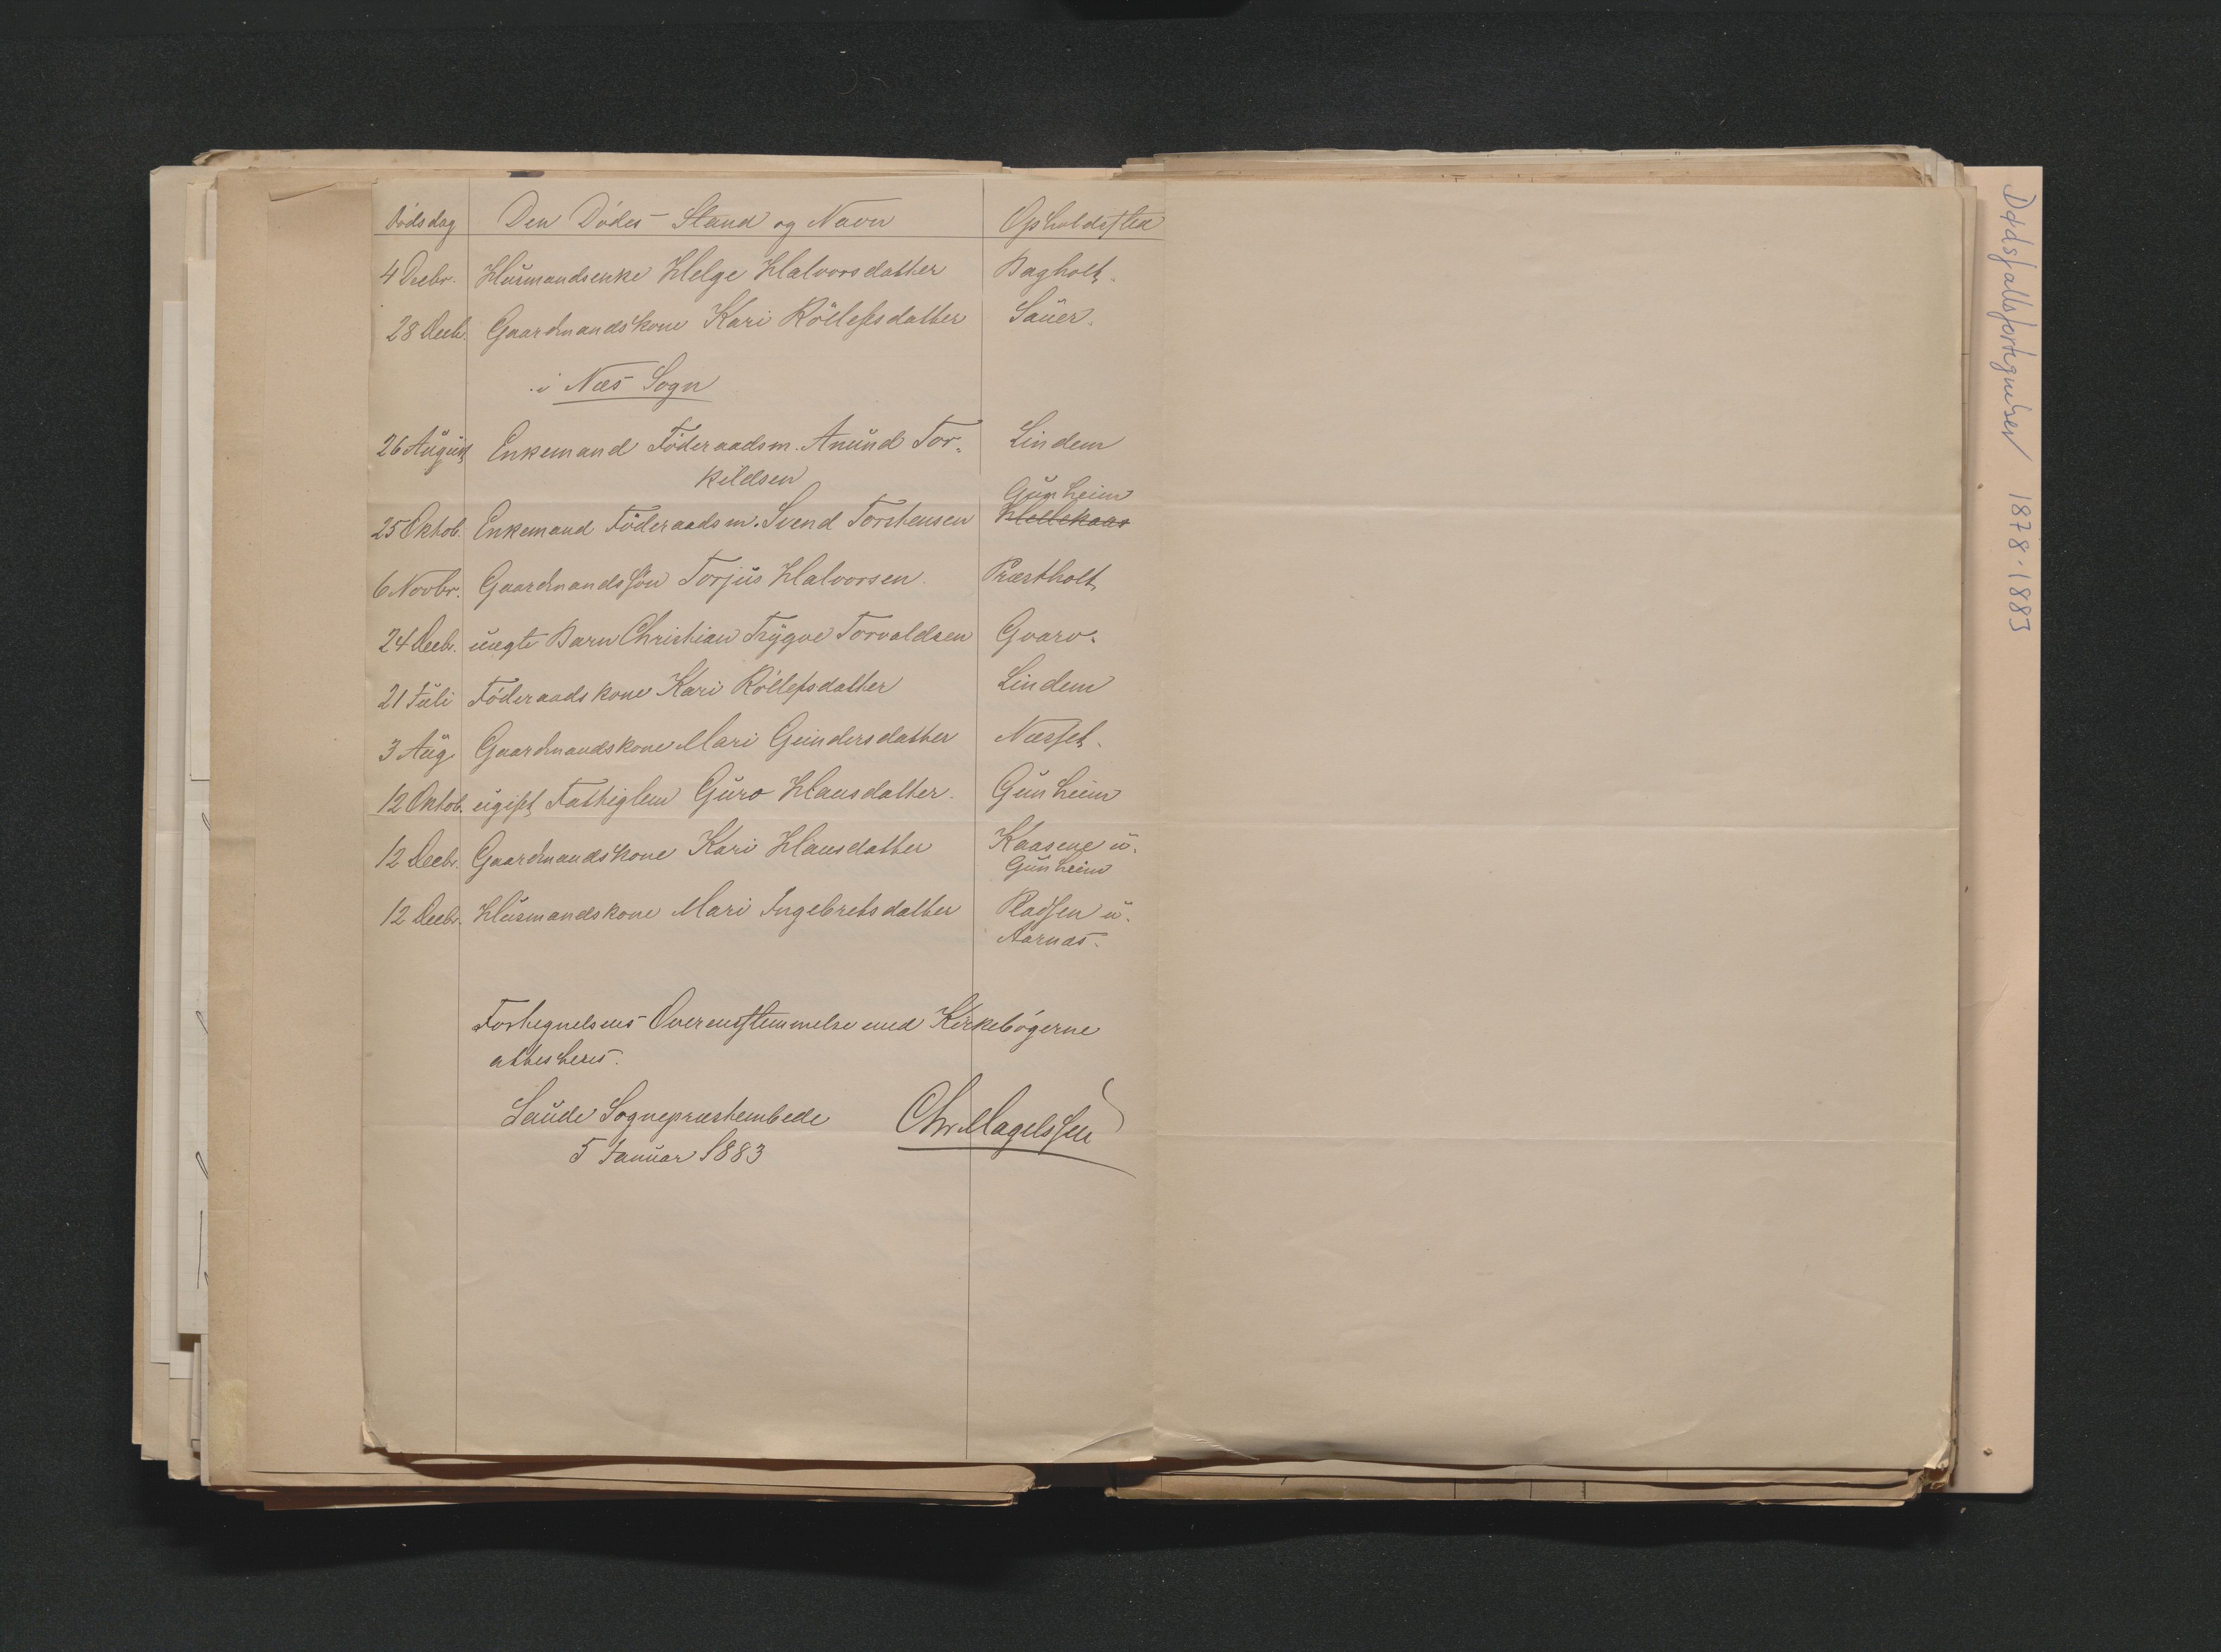 Dödsdag Den Dödes Stand og Navn Opholdssted
4 Decbr. Husmandsenke Helge Halvorsdatter Bagholt.
28 Decbr. Gaardmandskone Kari Röllefsdatter Sauer.
i Næs Sogn
26 August Enkemand Föderaadsm. Anund Tor- Lindem
kildsen
Gunheim
25 Oktob. Enkemand Föderaadsm. Svend Torstensen Hellekaas
6 Novbr. Gaardmandssön Torjus Halvorsen. Præstholt
24 Decbr. uægte Barn Christian Trygve Torvaldsen Gvarv.
21 Juli Föderaadskone Kari Röllefsdatter Lindem
3 Aug. Gaardmandskone Mari Geindersdatter Næsset.
12 Oktob. ugift Fattiglem Guro Hansdatter. Gunheim
12 Decbr. Gaardmandskone Kari Hansdatter Kaasene u.
Gunheim
12 Decbr. Husmandskone Mari Ingebretsdatter Pladsen u.
Aarnæs.
Fortegnelsens Overensstemmelse med Kirkebögerne
attesteres.
Saude Sognepræstembede Chr Magelssen
5 Januar 1883
Dødsfallsfortegnelser 1878-1883